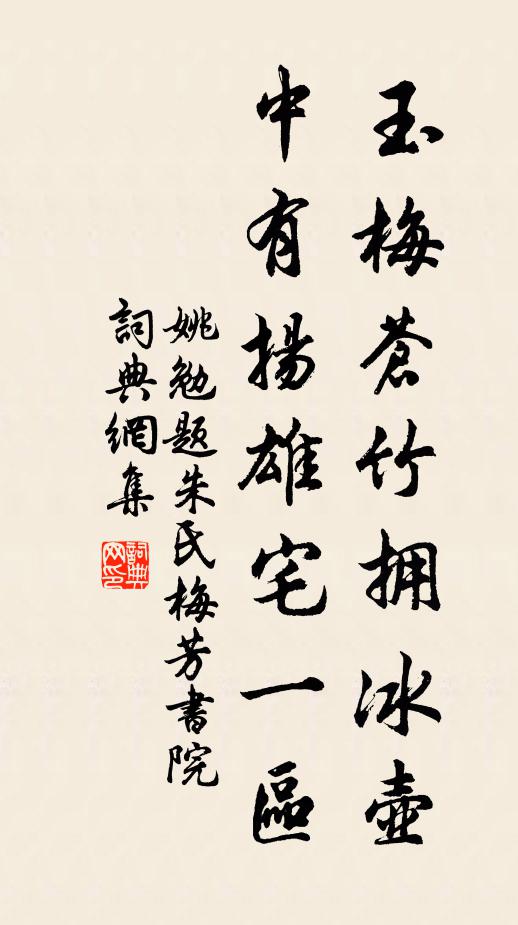 玉梅苍竹拥冰壶
中有揚雄宅一區
姚勉題朱氏梅芳書院
詞典網集
詞典网印